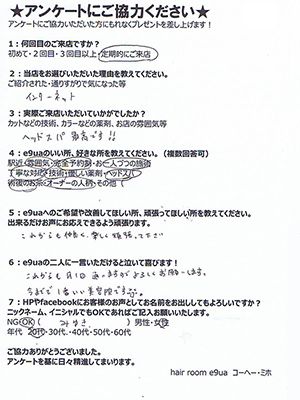 ★アンケートにご協力ください★
アンケートにご協力いただいた方にもれなくプレゼントを差し上げます！
1：何回目のご来店ですか？
初めて・2回目・3回目以上・定期的にご来店
2：当店をお選びいただいた理由を教えてください。
ご紹介された・通りすがりで気になった等
インターネット
3：実際ご来店いただいていかがでしたか？
カットなどの技術、カラーなどの薬剤、お店の雰囲気等
ヘッドスパ 最高です!!
4：e9uaのいい所、好きな所を教えてください。（複数回答可）
駅近・雰囲気・完全予約制・お一人づつの施術
丁寧な対応・技術・優しい薬剤・ヘッドスパ
術後のお茶・オーナーの人柄・その他（
5：e9uaへのご希望や改善してほしい所、頑張ってほしい所を教えてください。
出来るだけお声にお応えできるよう頑張ります。
これからも仲良く、楽しく頑張って下さい
6：e9uaの二人に一言いただけると泣いて喜びます！
これからも月1回 通いますがよろしくお願いします。
今まで1番いい美容院ですよ。
7：HPやfacebookにお客様のお声としてお名前をお出ししてもよろしいですか？
ニックネーム、イニシャルでもOKであればご記入お願いいたします。
NG・OK（ みゆき ）男性・女性
年代 20代・30代・40代・50代・60代
ご協力ありがとうございました。
アンケートを基に日々精進してまいります。
hair room e9ua コーヘー・ミホ